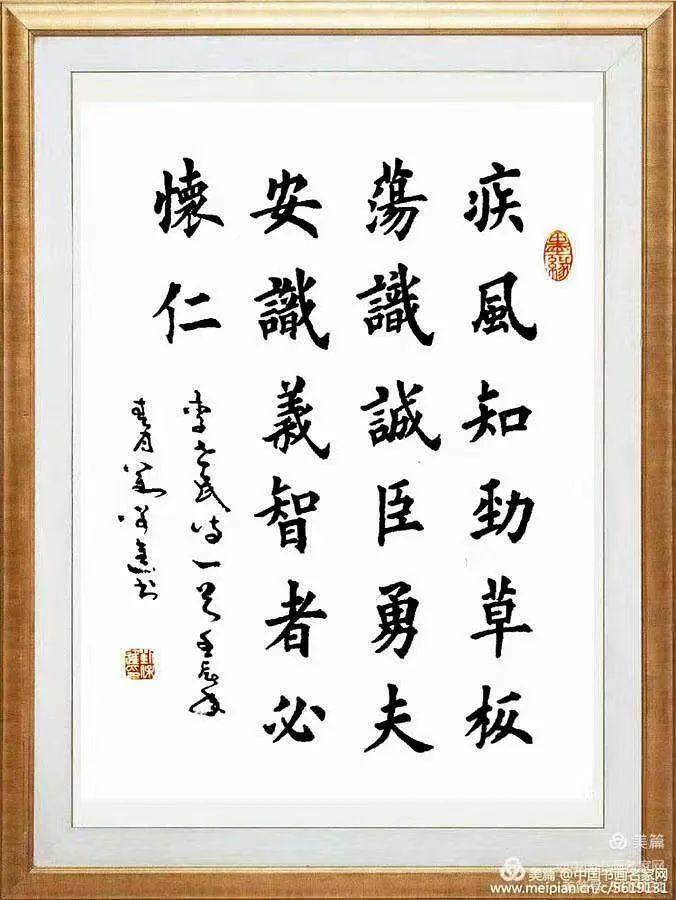 疾風知勁草板
蕩識誠臣勇夫
安識義智者必
懷仁
李世民詩一首壬辰年
春月
書緣
美篇
美篇 @中国书画名家网
www.meipian.cn/c/5619131